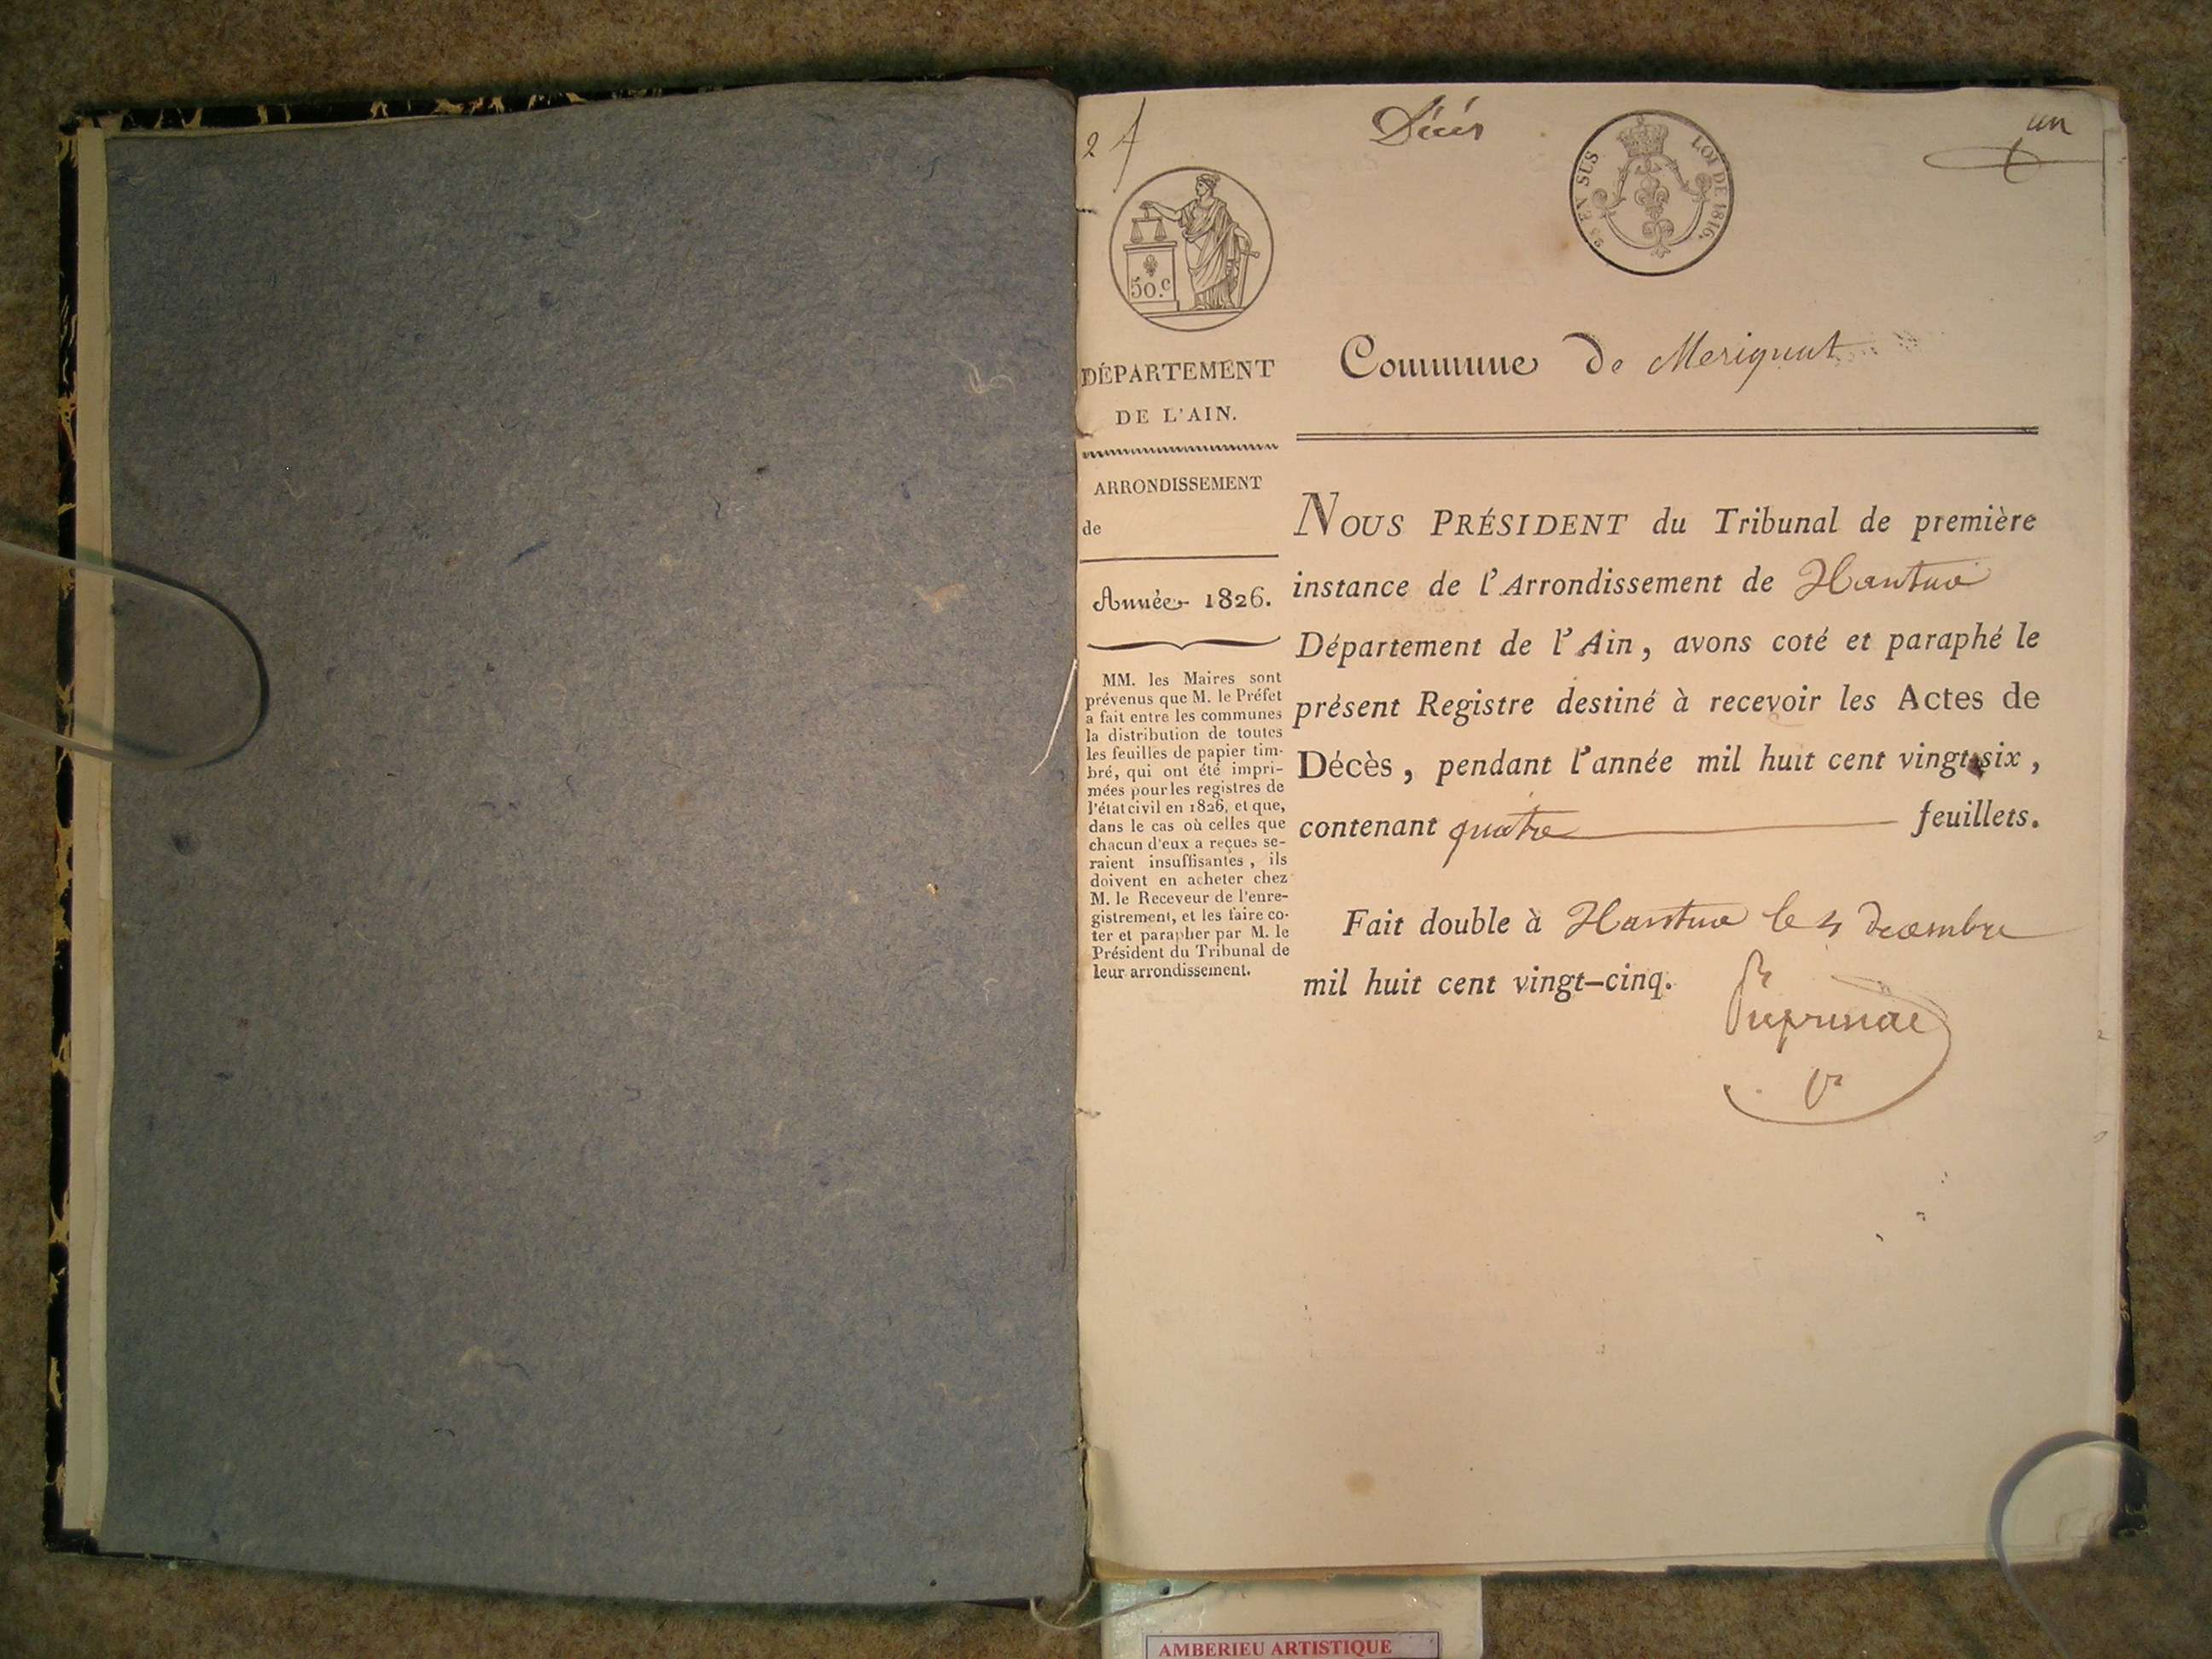 2
Décès
un
25 EN SUS
LOI DE 1816.
50.c
DÉPARTEMENT
DE L'AIN.
ARRONDISSEMENT
de
Année 1826.
MM. les Maires sont
prévenus que M. le Préfet
a fait entre les communes
la distribution de toutes
les feuilles de papier tim-
bré, qui ont été impri-
mées pour les registres de
l'état civil en 1826, et que,
dans le cas où celles que
chacun d'eux a reçues se-
raient insuffisantes, ils
doivent en acheter chez
M. le Receveur de l'enre-
gistrement, et les faire co-
ter et parapher par M. le
Président du Tribunal de
leur arrondissement.
Commune de Merignat
NOUS PRÉSIDENT du Tribunal de première
instance de l'Arrondissement de Nantua
Département de l'Ain, avons coté et paraphé le
présent Registre destiné à recevoir les Actes de
Décès, pendant l'année mil huit cent vingt-six,
contenant quatre feuillets.
Fait double à Nantua le 4 décembre
mil huit cent vingt-cinq.
AMBERIEU ARTISTIQUE